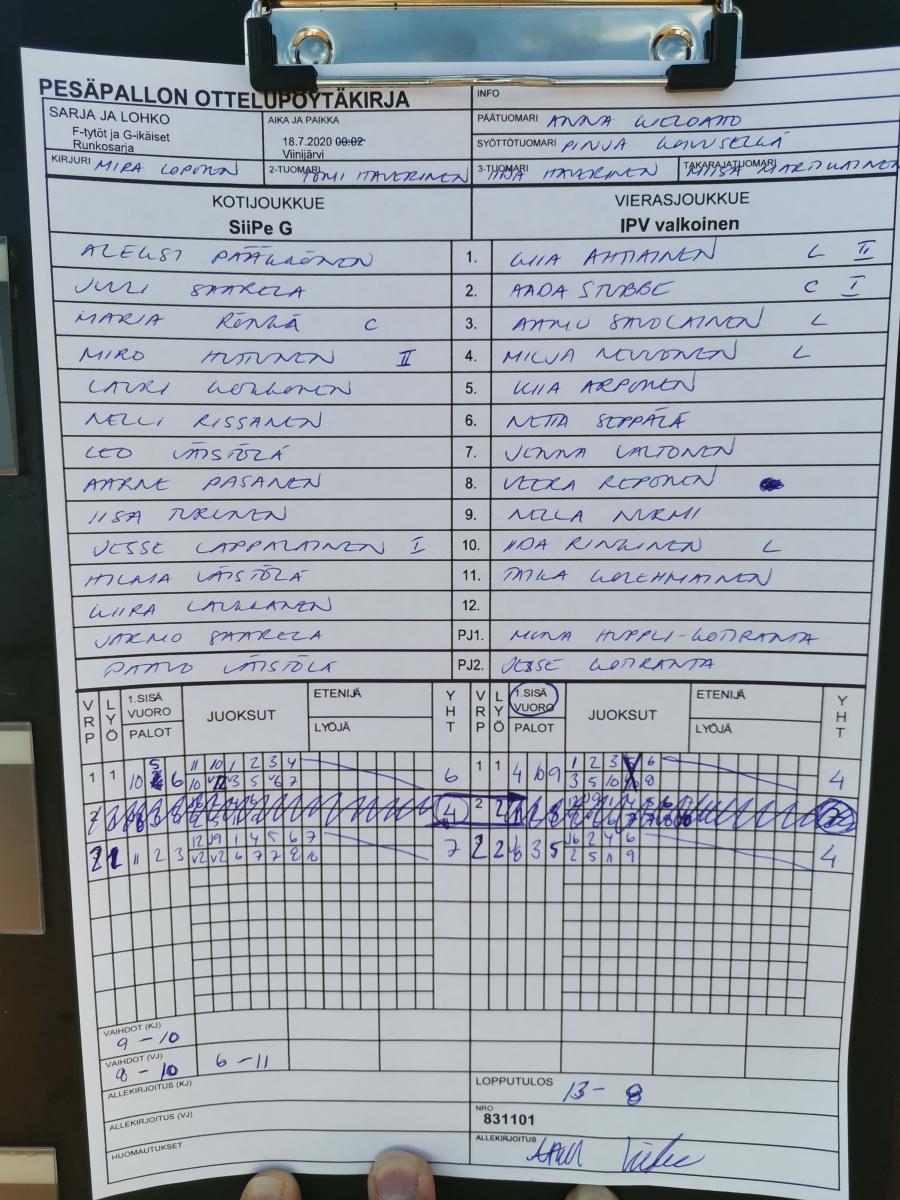 PESÄPALLON OTTELUPÖYTÄKIRJA
INFO
SARJA JA LOHKO
F-tytöt ja G-ikäiset
Runkosarja
AIKA JA PAIKKA
18.7.2020 00:02
Viinijärvi
PÄÄTUOMARI ANNA
SYÖTTÖTUOMARI PINJA
KIRJURI MIRA LOPONEN
2-TUOMARI TOMI HAVERINEN
3-TUOMARI IINA HAVERINEN
TAKARAJATUOMARI MIISA MARTIKAINEN
KOTIJOUKKUE
SiiPe G
VIERASJOUKKUE
IPV valkoinen
ALEKSI PÄÄKKÖNEN 1. KIIA AHTIAINEN L II
JULI SAARELA 2. AADA STUBBE C I
MARIA RÖNKÄ C 3. AAMU SAVOLAINEN L
MIRO HUTTUNEN II 4. MILJA NEVVONEN L
LAURI KOKKONEN 5. KIIA ARPONEN
NELLI RISSANEN 6. NETTA SEPPÄLÄ
LEO VÄISTÖLÄ 7. JENNA VALTONEN
AARNE PASANEN 8. VEERA REPONEN
IISA TURUNEN 9. NELLA NURMI
JESSE LAPPALAINEN I 10. IIDA RINKINEN L
HILMA VÄISTÖLÄ 11. TAIKA KOLEHMAINEN
KIIRA LAUKKANEN 12.
JARMO SAARELA PJ1. MINNA HUPPLI-KOTIRANTA
PAAVO VÄISTÖLÄ PJ2. JESSE KOTIRANTA
VRP LYÖ 1.SISÄ VUORO PALOT JUOKSUT ETENIJÄ LYÖJÄ YHT VRP LYÖ 1.SISÄ VUORO PALOT JUOKSUT ETENIJÄ LYÖJÄ YHT
5 11 10 1 2 3 4 1 2 3 5 6
1 1 10 6 6 1 1 4 10 9 4
2 1 11 2 3 7 2 2 3 5 4
VAIHDOT (KJ)
9-10
VAIHDOT (VJ)
8-10 6-11
ALLEKIRJOITUS (KJ)
LOPPUTULOS 13-8
ALLEKIRJOITUS (VJ)
NRO
831101
HUOMAUTUKSET
ALLEKIRJOITUS